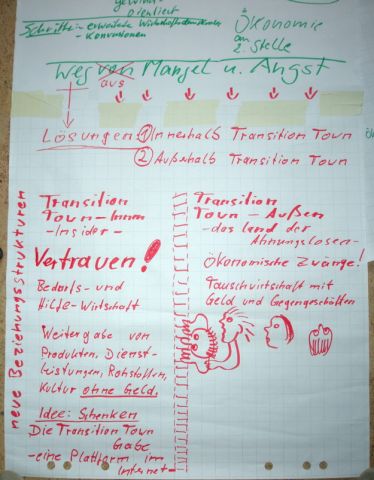 gewinn-
orientiert
Schritte: - erweiterte
- Konventionen
Ökonomie
an
2. Stelle
weg von Mangel u. Angst
aus
Lösungen: ① Innerhalb Transition Town
② Außerhalb Transition Town
neue Beziehungsstrukturen
Transition
Town-Innen
-Insider-
Vertrauen!
Bedarfs- und
Hilfe-Wirtschaft
Weitergabe von
Produkten, Dienst-
leistungen, Rohstoffen,
Kultur ohne Geld.
Idee: Schenken
Die Transition Town
Gabe
-eine Plattform im
Internet-
Transition
Town - Außen
-das Land der
Ahnungslosen-
Ökonomische Zwänge!
Tauschwirtschaft mit
Geld und Gegengeschäften